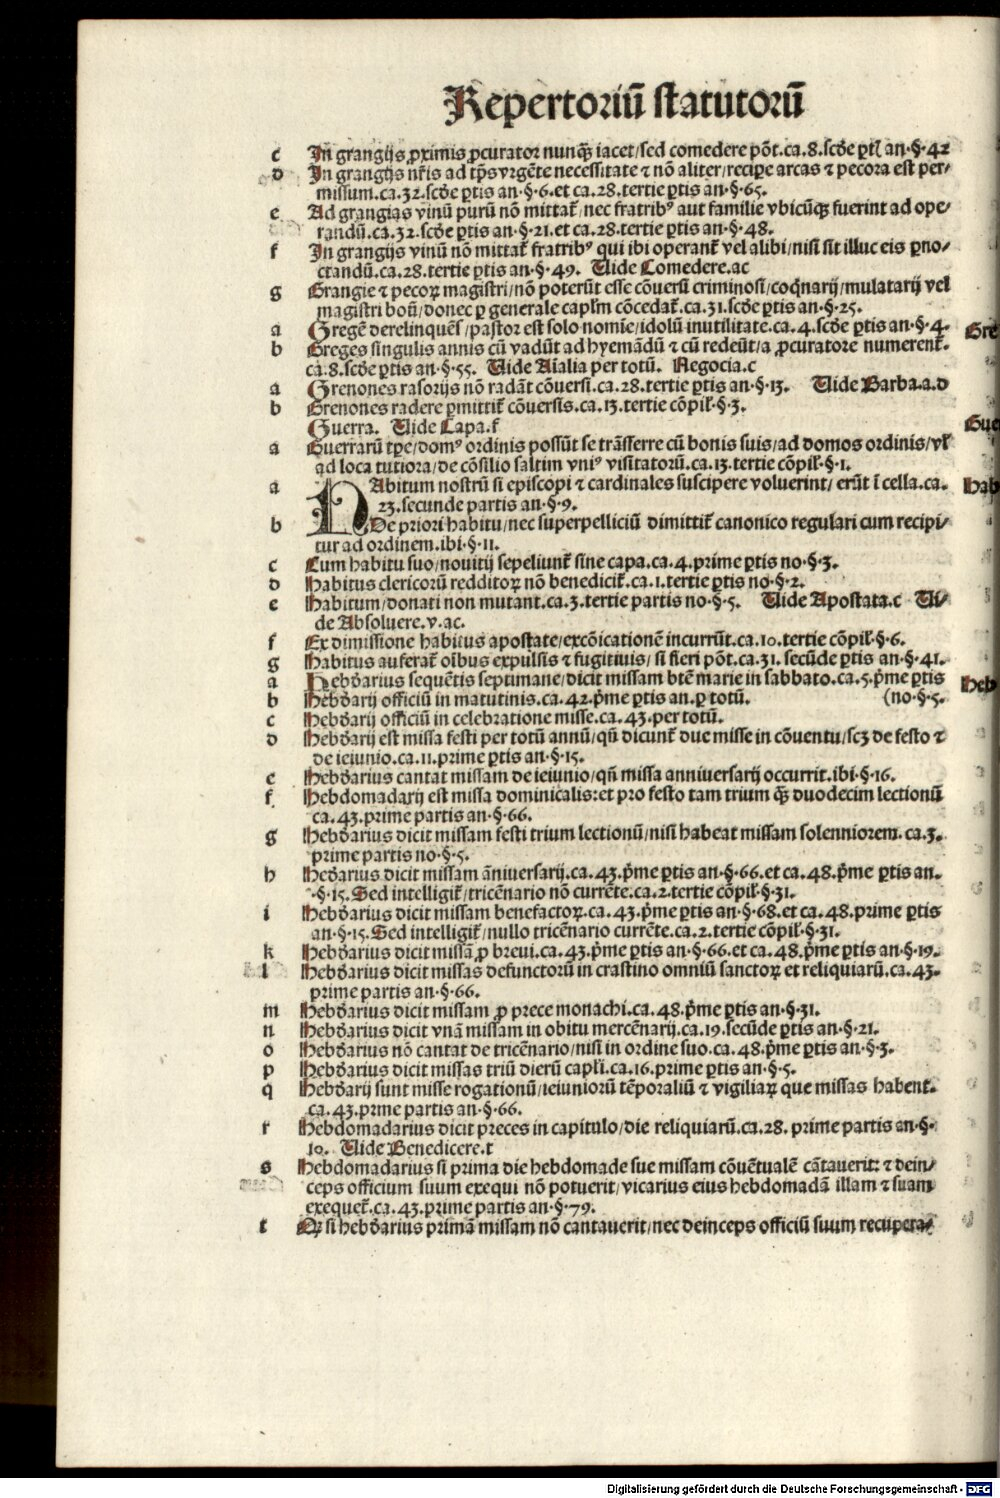 Repertoriū statutorū
c In grangijs ꝓximis ꝓcurator nunq̄ꝫ iacet/sed comedere pōt.ca.8.scd̄e ꝑtꝭ an.§.42
d In grangijs nr̄is ad tp̄s vrgēte necessitate ⁊ nō aliter/recipe arcas ⁊ pecora est per/
missum.ca.32.scd̄e ꝑtis an.§.6.et ca.28.tertie ꝑtis an.§.65.
e Ad grangias vinū purū nō mittat̄/nec fratribꝰ aut familie vbicūqꝫ fuerint ad ope/
randū.ca.32.scd̄e ꝑtis an.§.21.et ca.28.tertie ꝑtis an.§.48.
f In grangijs vinū nō mittat̄ fratribꝰ qui ibi operant̄ vel alibi/nisi sit illuc eis ꝑno/
ctandū.ca.28.tertie ꝑtis an.§.49. Uide Comedere.ac
g Grangie ⁊ pecoꝝ magistri/nō poterūt esse cōuersi criminosi/coqnarij/mulatarij vel
magistri boū/donec ꝑ generale capl̄m cōcedat̄.ca.31.scd̄e ꝑtis an.§.25.
a Gregē derelinquēs/pastor est solo nomīe/idolū inutilitate.ca.4.scd̄e ꝑtis an.§.4.
Gre
b Greges singulis annis cū vadūt ad hyemādū ⁊ cū redeūt/a ꝓcuratore numerent̄.
ca.8.scd̄e ꝑtis an.§.55. Uide Aīalia per totū. Negocia.c
a Grenones rasorijs nō radāt cōuersi.ca.28.tertie ꝑtis an.§.13. Uide Barba.a.d
b Grenones radere ꝑmittit̄ cōuersis.ca.13.tertie cōpil̄.§.3.
Guerra. Uide Capa.f
Gue
a Guerrarū tꝑe/domꝰ ordinis possūt se trāsferre cū bonis suis/ad domos ordinis/vl̄
ad loca tutiora/de cōsilio saltim vniꝰ visitatorū.ca.13.tertie cōpil̄.§.1.
a HAbitum nostrū si episcopi ⁊ cardinales suscipere voluerint/erūt ī cella.ca.
Hab
23.secunde partis an.§.9.
b De priori habitu/nec superpelliciū dimittit̄ canonico regulari cum recipi/
tur ad ordinem.ibi.§.11.
c Cum habitu suo/nouitij sepeliunt̄ sine capa.ca.4.prime ꝑtis no.§.3.
d Habitus clericorū redditoꝝ nō benedicit̄.ca.1.tertie ꝑtis no.§.2.
e Habitum/donati non mutant.ca.3.tertie partis no.§.5. Uide Apostata.c Ui/
de Absoluere.v.ac.
f Ex dimissione habitus apostate/excōicationē incurrūt.ca.10.tertie cōpil̄.§.6.
g Habitus auferat̄ oībus expulsis ⁊ fugitiuis/si fieri pōt.ca.31.secūde ꝑtis an.§.41.
a Hebd̄arius sequētis septimane/dicit missam btē marie in sabbato.ca.5.p̄me ꝑtis
Heb
b Hebd̄arij officiū in matutinis.ca.42.p̄me ꝑtis an.ꝑ totū. (no.§.5.
c Hebd̄arij officiū in celebratione misse.ca.43.per totū.
d Hebd̄arij est missa festi per totū annū/qn̄ dicunt̄ due misse in cōuentu/scꝫ de festo ⁊
de ieiunio.ca.11.prime ꝑtis an.§.15.
e Hebd̄arius cantat missam de ieiunio/qn̄ missa anniuersarij occurrit.ibi.§.16.
f Hebdomadarij est missa dominicalis:et pro festo tam trium q̄ꝫ duodecim lectionū
ca.43.prime partis an.§.66.
g Hebd̄arius dicit missam festi trium lectionū/nisi habeat missam solenniorem.ca.3.
prime partis no.§.5.
h Hed̄arius dicit missam āniuersarij.ca.43.p̄me ꝑtis an.§.66.et ca.48.p̄me ꝑtis an.
.§.15.Sed intelligit̄/tricēnario nō currēte.ca.2.tertie cōpil̄.§.31.
i Hebd̄arius dicit missam benefactoꝝ.ca.43.p̄me ꝑtis an.§.68.et ca.48.prime ꝑtis
an.§.15.Sed intelligit̄/nullo tricēnario currēte.ca.2.tertie cōpil̄.§.31.
k Hebd̄arius dicit missā ꝓ breui.ca.43.p̄me ꝑtis an.§.66.et ca.48.p̄me ꝑtis an.§.19.
l Hebd̄arius dicit missas defunctorū in crastino omniū sanctoꝝ et reliquiarū.ca.43.
prime partis an.§.66.
m Hebd̄arius dicit missam ꝓ prece monachi.ca.48.p̄me ꝑtis an.§.31.
n Hebd̄arius dicit vnā missam in obitu mercēnarij.ca.19.secūde ꝑtis an.§.21.
o Hebd̄arius nō cantat de tricēnario/nisi in ordine suo.ca.48.p̄me ꝑtis an.§.3.
p Hebd̄arius dicit missas triū dierū capl̄i.ca.16.prime ꝑtis an.§.5.
q Hebd̄arij sunt misse rogationū/ieiuniorū tēporaliū ⁊ vigiliaꝝ que missas habent̄.
ca.43.prme partis an.§.66.
r Hebdomadarius dicit preces in capitulo/die reliquiarū.ca.28.prime partis an.§.
10. Uide Benedicere.t
s Hebdomadarius si prima die hebdomade sue missam cōuētualē cātauerit: ⁊ dein/
ceps officium suum exequi nō potuerit/vicarius eius hebdomadā illam ⁊ suam
exequet̄.ca.43.prime partis an.§.79.
t Qꝫ si hebd̄arius primā missam nō cantauerit/nec deinceps officiū suum recupera/
Digitalisierung gefördert durch die Deutsche Forschungsgemeinschaft - DFG